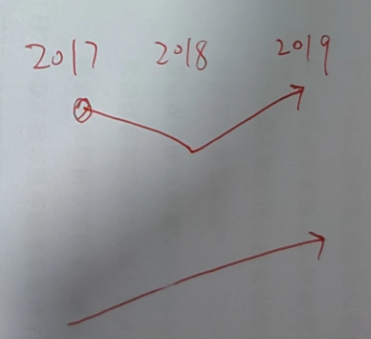 2017 2018 2019